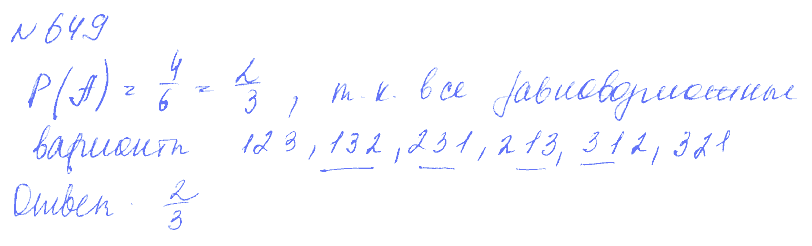 № 649
P(A) = 4/6 = 2/3, т.к. все равновозможные
варианты 123, 132, 231, 213, 312, 321
Ответ. 2/3